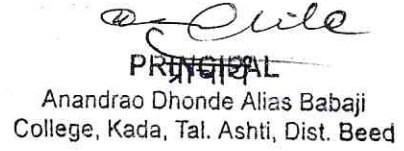 PRINCIPAL
प्राचार्य
Anandrao Dhonde Alias Babaji
College, Kada, Tal. Ashti, Dist. Beed